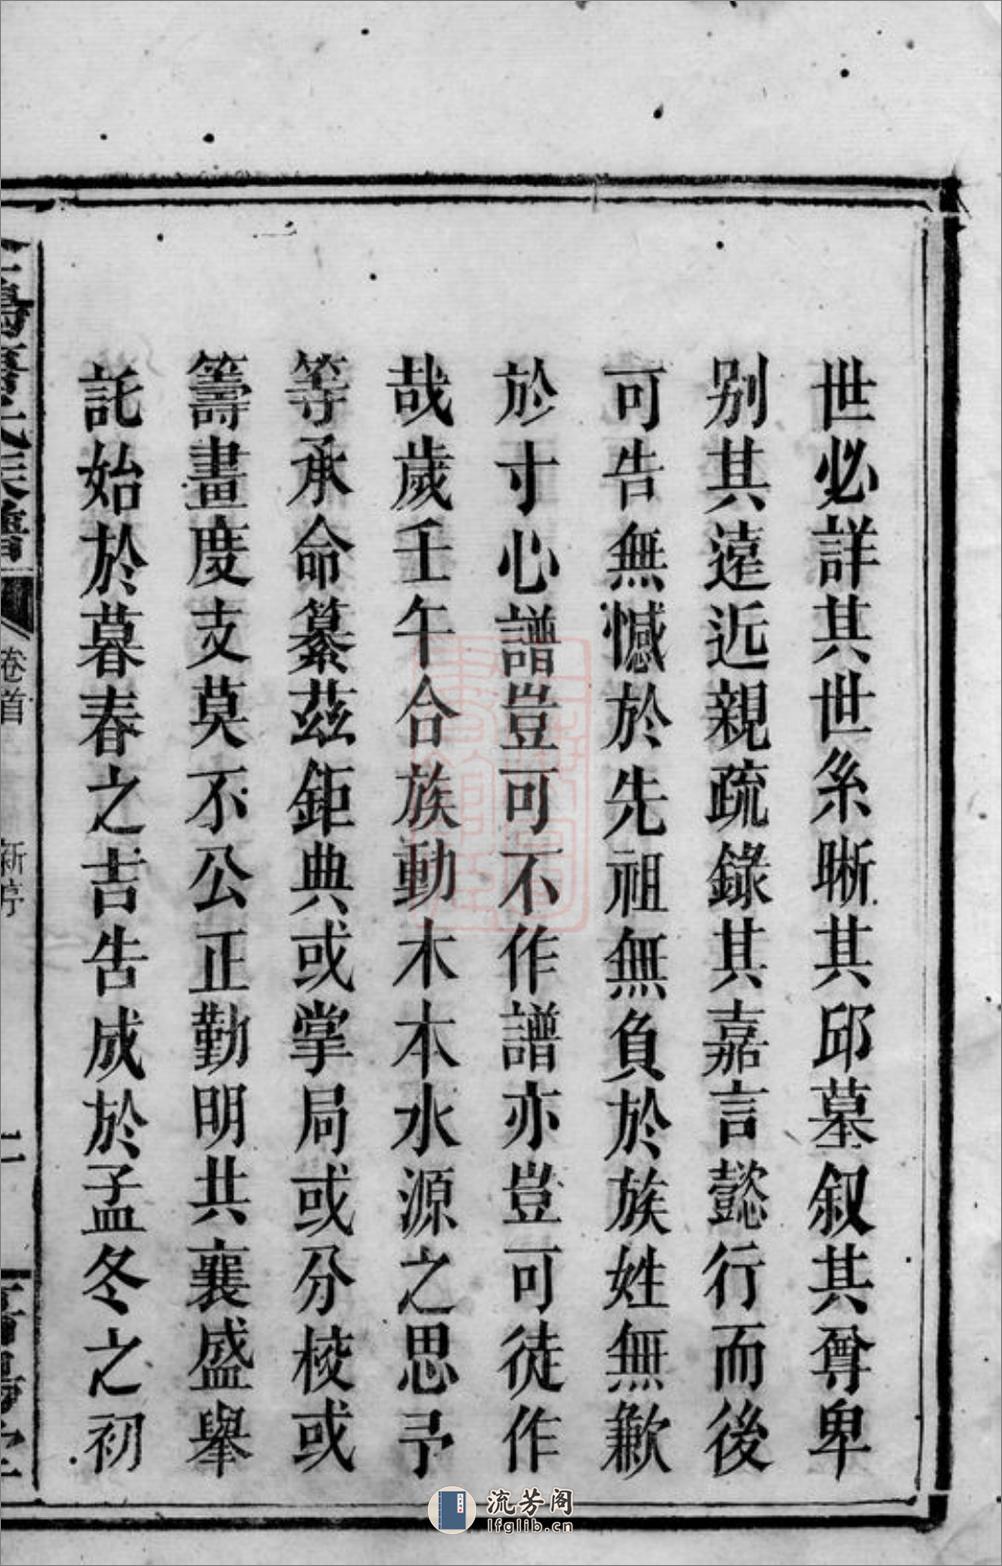 世必詳其世系晰其邱墓叙其尊卑
别其遠近親疏錄其嘉言懿行而後
可告無憾於先祖無負於族姓無歉
於寸心譜豈可不作譜亦豈可徒作
哉歲壬午合族動木本水源之思予
等承命纂茲鉅典或掌局或分校或
籌畫度支莫不公正勤明共襄盛舉
託始於暮春之吉告成於孟冬之初
卷首
新序
二
流芳阁
lfglib.cn